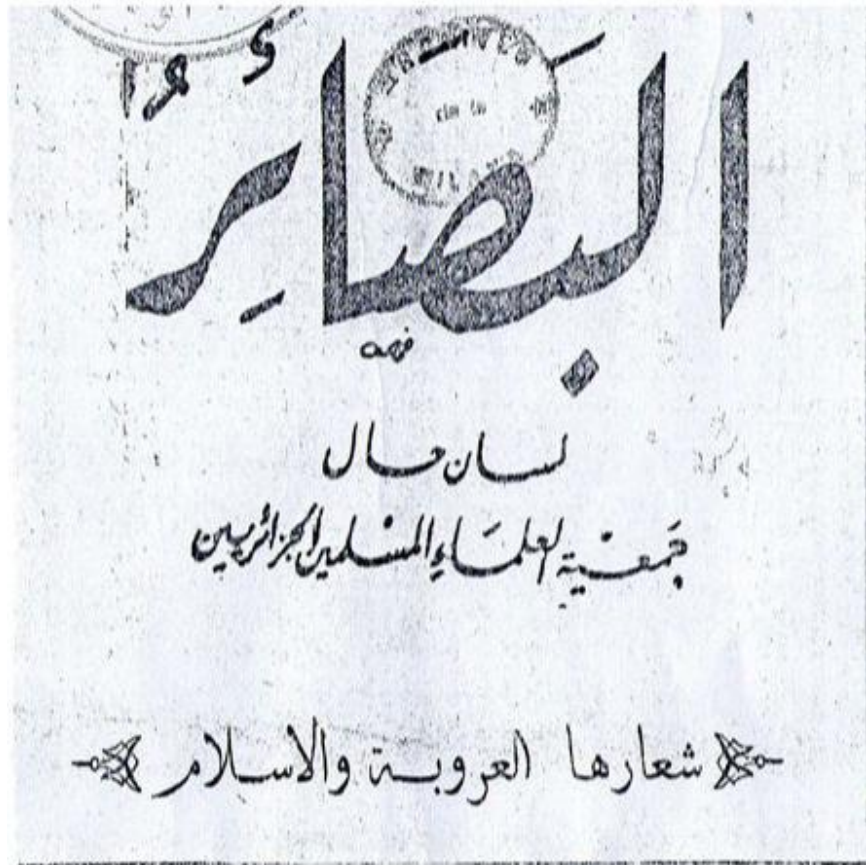 البَصَائِرُ
لسان حال
جمعيّة العلمَاءِ المسْلمين الجزائريين
شعارها العروبة والاسلام